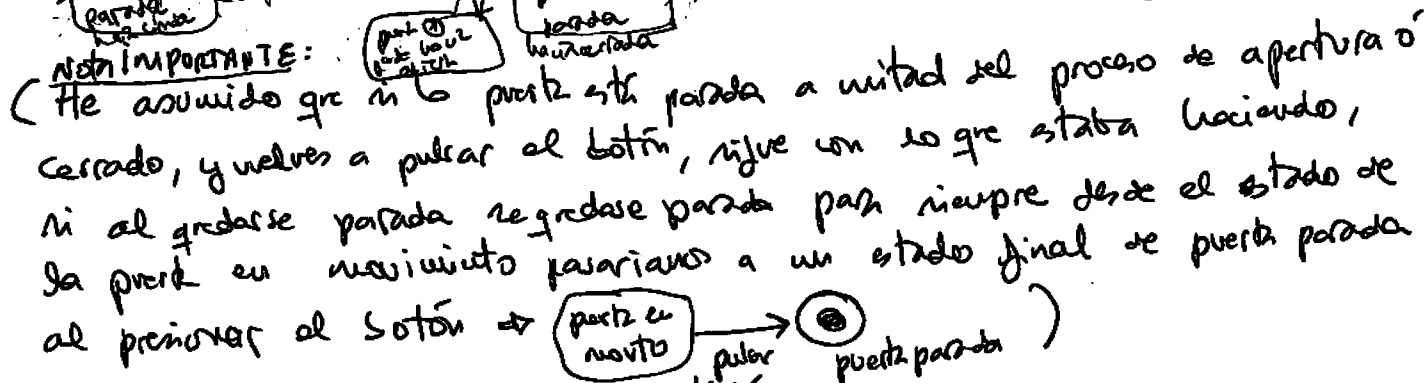 parada
hacia cerrada
NOTA IMPORTANTE:
(He asumido que si la puerta está parada a mitad del proceso de apertura ó
cerrado, y vuelves a pulsar el botón, sigue con lo que estaba haciendo,
si al quedarse parada se quedase parada para siempre desde el estado de
la puerta en movimiento pasaríamos a un estado final de puerta parada
al presionar el botón ⇒ puerta en
movto
pulsar
puerta parada )